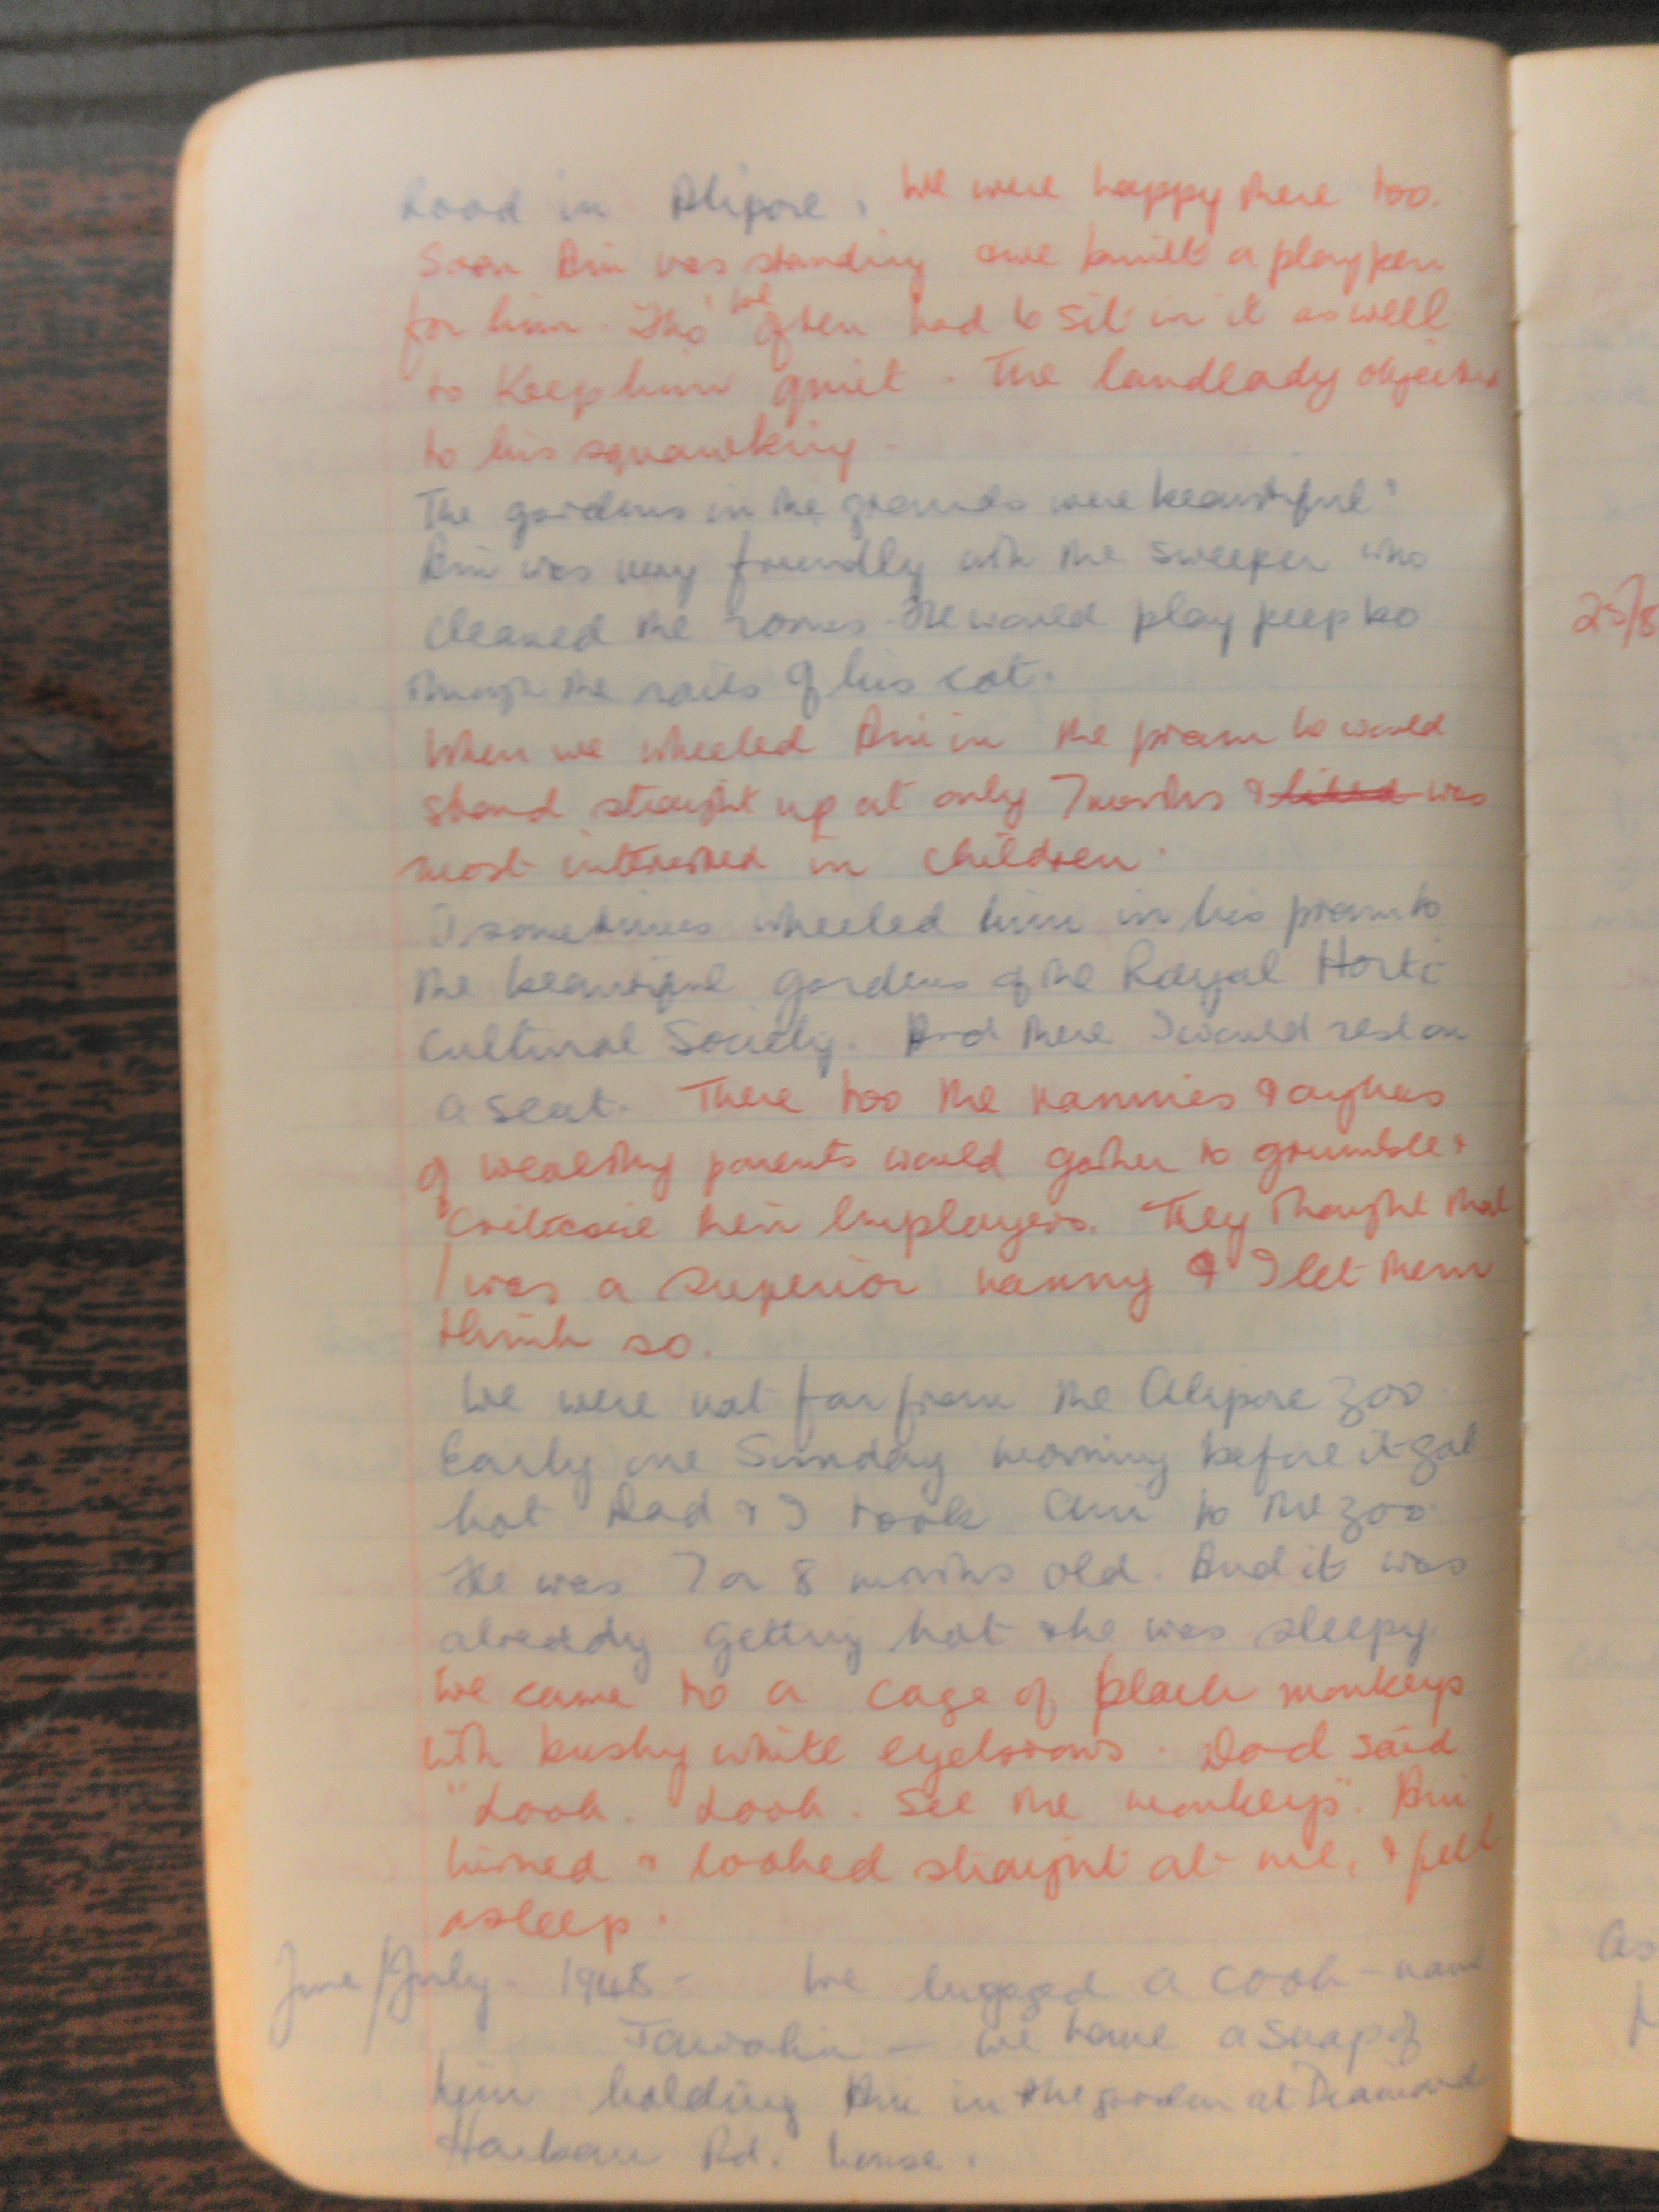 Road in Alipore. We were happy there too.
Soon Ani was standing &we built a playpen
for him. Tho' we often had to sit in it as well
to keep him quiet. The landlady objected
to his squawking.
The gardens in the grounds were beautiful.
Ani was very friendly with the sweeper who
cleaned the rooms. He would play peep bo
through the rails of his cot.
When we wheeled Ani in the pram he would
stand straight up at only 7 months & liked was
most interested in children.
I sometimes wheeled him in his pram to
the beautiful gardens of the Royal Horti
Cultural Society. And there I would rest on
a seat. There too the nannies & ayhas
of wealthy parents would gather to grumble &
criticise their employers. They thought that
I was a superior nanny & I let them
think so.
We were not far from the Alipore Zoo.
Early one Sunday morning before it got
hot Dad & I took Ani to the zoo.
He was 7 or 8 months old. And it was
already getting hot & he was sleepy.
We came to a cage of black monkeys
with bushy white eyebrows. Dad said
"Look. Look. See the monkeys". Ani
turned & looked straight at me, & fell
asleep.
June/July. 1948 - We engaged a cook - name
— we have a snap of
him holding Ani in the garden at Diamond
Harbour Rd. house.
25/8
as